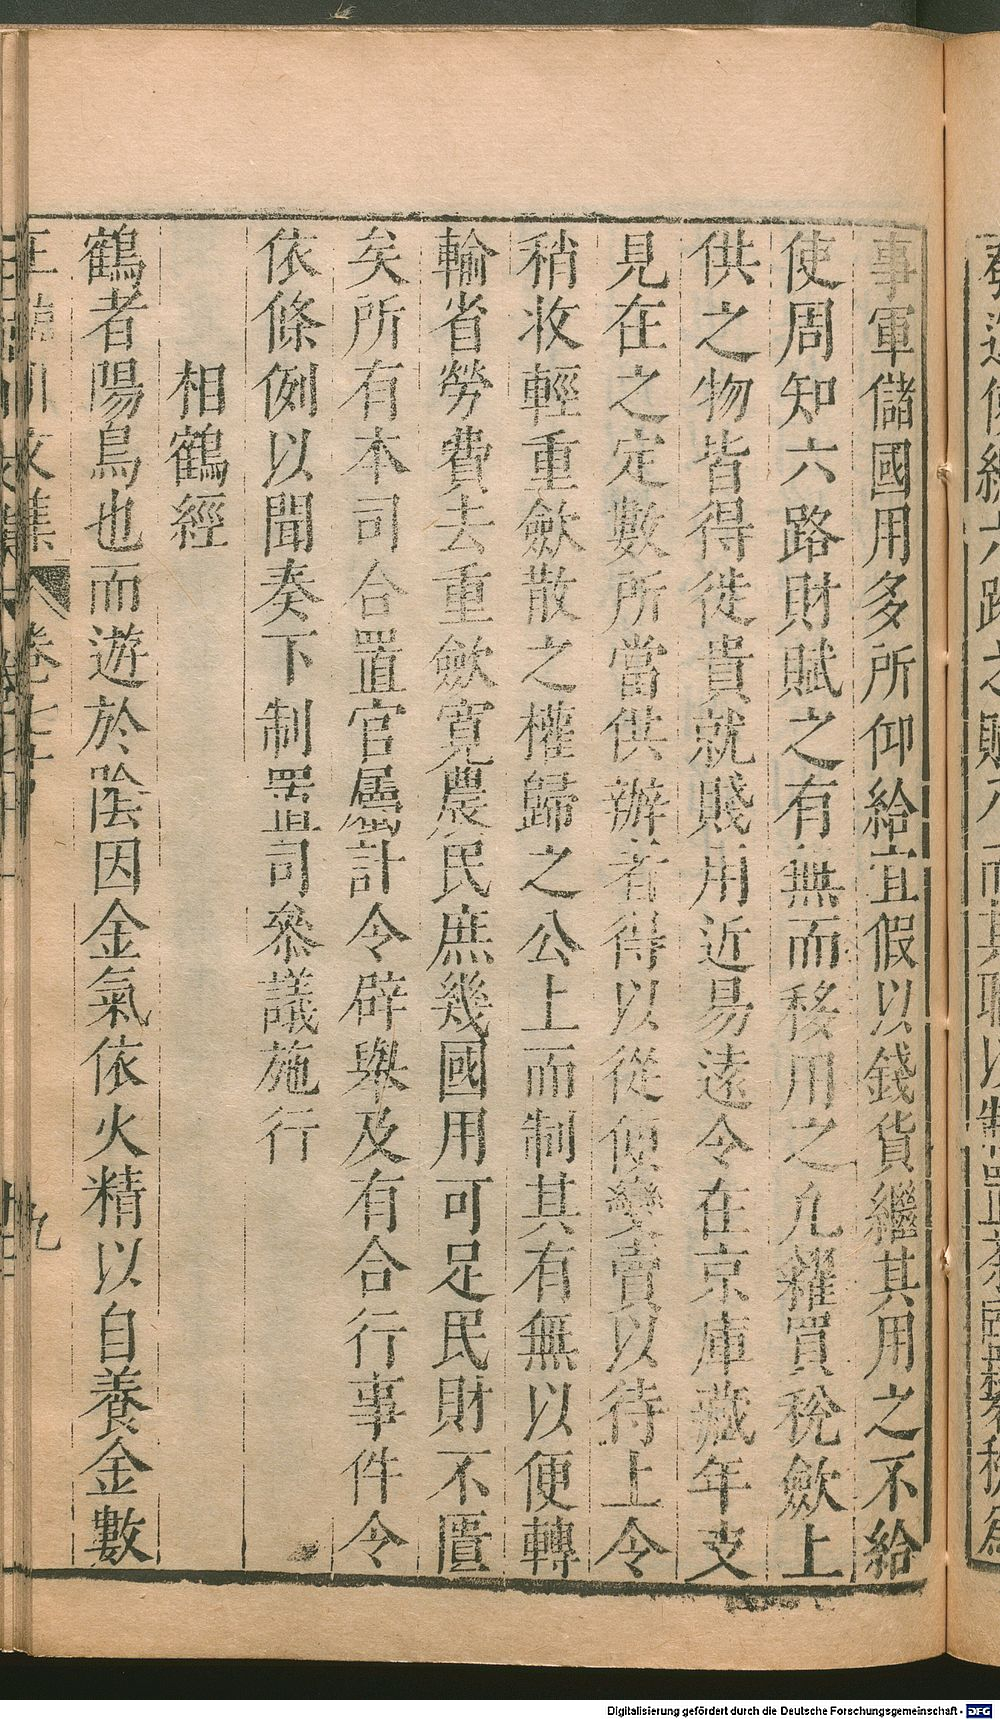 事軍儲國用多所仰給宜假以錢貨繼其用之不給
使周知六路財賦之有無而移用之凢糴買稅歛上
供之物皆得徙貴就賤用近易遠令在京庫藏年支
見在之定數所當供辦者得以從便變賣以待上令
稍收輕重歛散之權歸之公上而制其有無以便轉
輸省勞費去重歛寬農民庶幾國用可足民財不匱
矣所有本司合置官屬計令辟舉及有合行事件令
依條例以聞奏下制置司叅議施行
相鶴經
鶴者陽鳥也而遊於陰因金氣依火精以自養金數
王臨川文集 卷七十 九
Digitalisierung gefördert durch die Deutsche Forschungsgemeinschaft - DFG